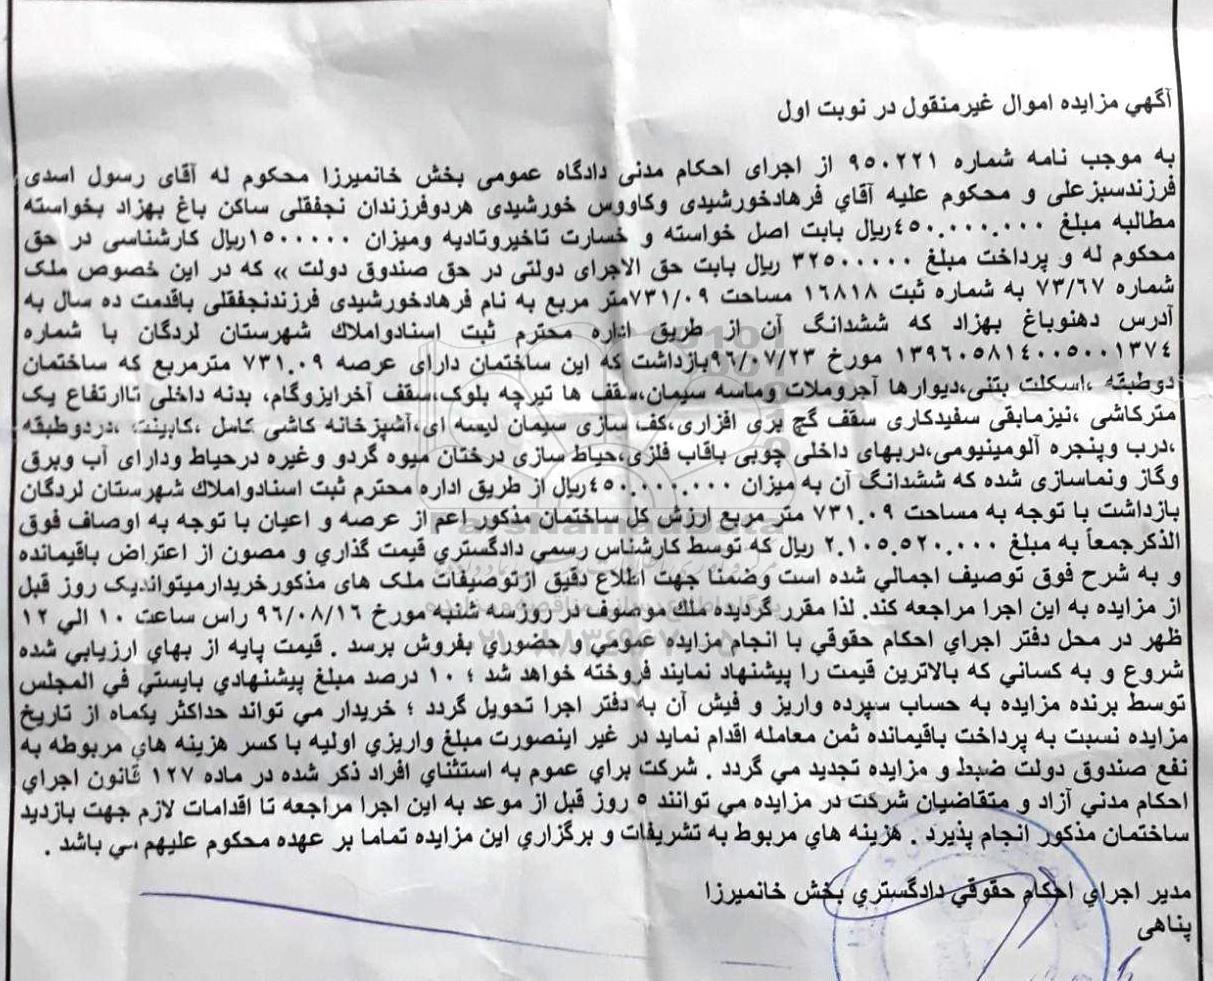 آگهي مزايده اموال غيرمنقول در نوبت اول
به موجب نامه شماره ٩٥٠٢٢١ از اجرای احکام مدنی دادگاه عمومی بخش خانمیرزا محکوم له آقای رسول اسدی
فرزندسبزعلی و محکوم علیه آقاي فرهادخورشیدی وکاووس خورشیدی هردوفرزندان نجفقلی ساکن باغ بهزاد بخواسته
مطالبه مبلغ ٤٥٠.٠٠٠.٠٠٠ریال بابت اصل خواسته و خسارت تاخیروتادیه ومیزان ١٥٠٠٠٠٠ریال کارشناسی در حق
محکوم له و پرداخت مبلغ ٣٢٥٠٠٠٠٠ ریال بابت حق الاجرای دولتی در حق صندوق دولت » که در این خصوص ملک
شماره ٧٣/٦٧ به شماره ثبت ١٦٨١٨ مساحت ٧٣١/٠٩متر مربع به نام فرهادخورشیدی فرزندنجفقلی باقدمت ده سال به
آدرس دهنوباغ بهزاد که ششدانگ آن از طریق اداره محترم ثبت اسنادواملاك شهرستان لردگان با شماره
١٣٩٦٠٥٨١٤٠٠٥٠٠١٣٧٤ مورخ ٩٦/٠٧/٢٣بازداشت که این ساختمان دارای عرصه ٧٣١.٠٩ مترمربع که ساختمان
دوطبقه ،اسکلت بتنی،دیوارها آجروملات وماسه سیمان،سقف ها تیرچه بلوک،سقف آخرایزوگام، بدنه داخلی تاارتفاع یک
مترکاشی ،نیزمابقی سفیدکاری سقف گچ بری افزاری،کف سازی سیمان لیسه ای،آشپزخانه کاشی کامل ،کابینت ،دردوطبقه
،درب وپنجره آلومینیومی،دربهای داخلی چوبی باقاب فلزی،حیاط سازی درختان میوه گردو وغیره درحیاط ودارای آب وبرق
وگاز ونماسازی شده که ششدانگ آن به میزان ٤٥٠.٠٠٠.٠٠٠ریال از طریق اداره محترم ثبت اسنادواملاك شهرستان لردگان
بازداشت با توجه به مساحت ٧٣١.٠٩ متر مربع ارزش کل ساختمان مذکور اعم از عرصه و اعیان با توجه به اوصاف فوق
الذکرجمعاً به مبلغ ٢.١٠٥.٥٢٠.٠٠٠ ریال که توسط کارشناس رسمي دادگستري قیمت گذاري و مصون از اعتراض باقیمانده
و به شرح فوق توصیف اجمالي شده است وضمنا جهت اطلاع دقیق ازتوصیفات ملک های مذکورخریدارمیتواندیک روز قبل
از مزایده به این اجرا مراجعه کند. لذا مقرر گردیده ملك موصوف در روزسه شنبه مورخ ٩٦/٠٨/١٦ راس ساعت ١٠ الي ١٢
ظهر در محل دفتر اجراي احکام حقوقي با انجام مزایده عمومي و حضوري بفروش برسد . قیمت پایه از بهاي ارزیابي شده
شروع و به کساني که بالاترین قیمت را پیشنهاد نمایند فروخته خواهد شد ؛ ١٠ درصد مبلغ پیشنهادي بایستي في المجلس
توسط برنده مزایده به حساب سپرده واریز و فیش آن به دفتر اجرا تحویل گردد ؛ خریدار مي تواند حداکثر یکماه از تاریخ
مزایده نسبت به پرداخت باقیمانده ثمن معامله اقدام نماید در غیر اینصورت مبلغ واریزي اولیه با کسر هزینه هاي مربوطه به
نفع صندوق دولت ضبط و مزایده تجدید مي گردد . شرکت براي عموم به استثناي افراد ذکر شده در ماده ١٢٧ قانون اجراي
احکام مدني آزاد و متقاضیان شرکت در مزایده مي توانند ٥ روز قبل از موعد به این اجرا مراجعه تا اقدامات لازم جهت بازدید
ساختمان مذکور انجام پذیرد . هزینه هاي مربوط به تشریفات و برگزاري این مزایده تماما بر عهده محکوم علیهم مي باشد .
مدیر اجراي احکام حقوقي دادگستري بخش خانمیرزا
پناهی